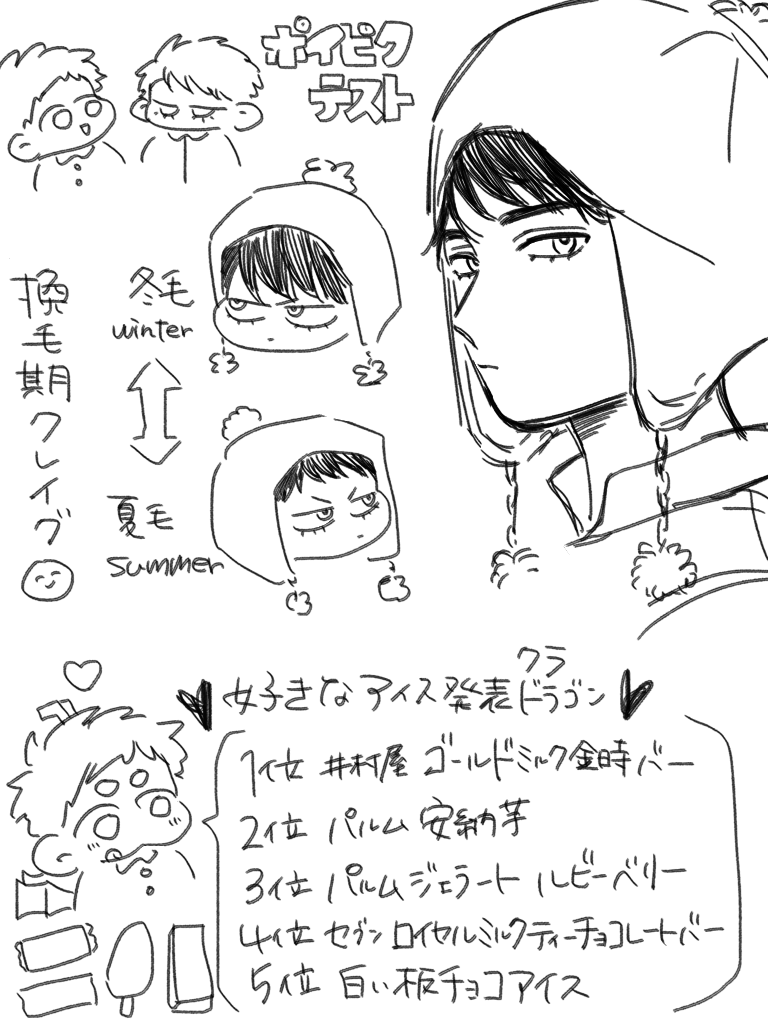 ポイピク
テスト
換毛期クレイグ
冬毛
winter
夏毛
summer
クラ
好きなアイス発表ドラゴン
1位 井村屋 ゴールドミルク金時バー
2位 パルム 安納芋
3位 パルムジェラート ルビーベリー
4位 セブン ロイヤルミルクティーチョコレートバー
5位 白い板チョコアイス